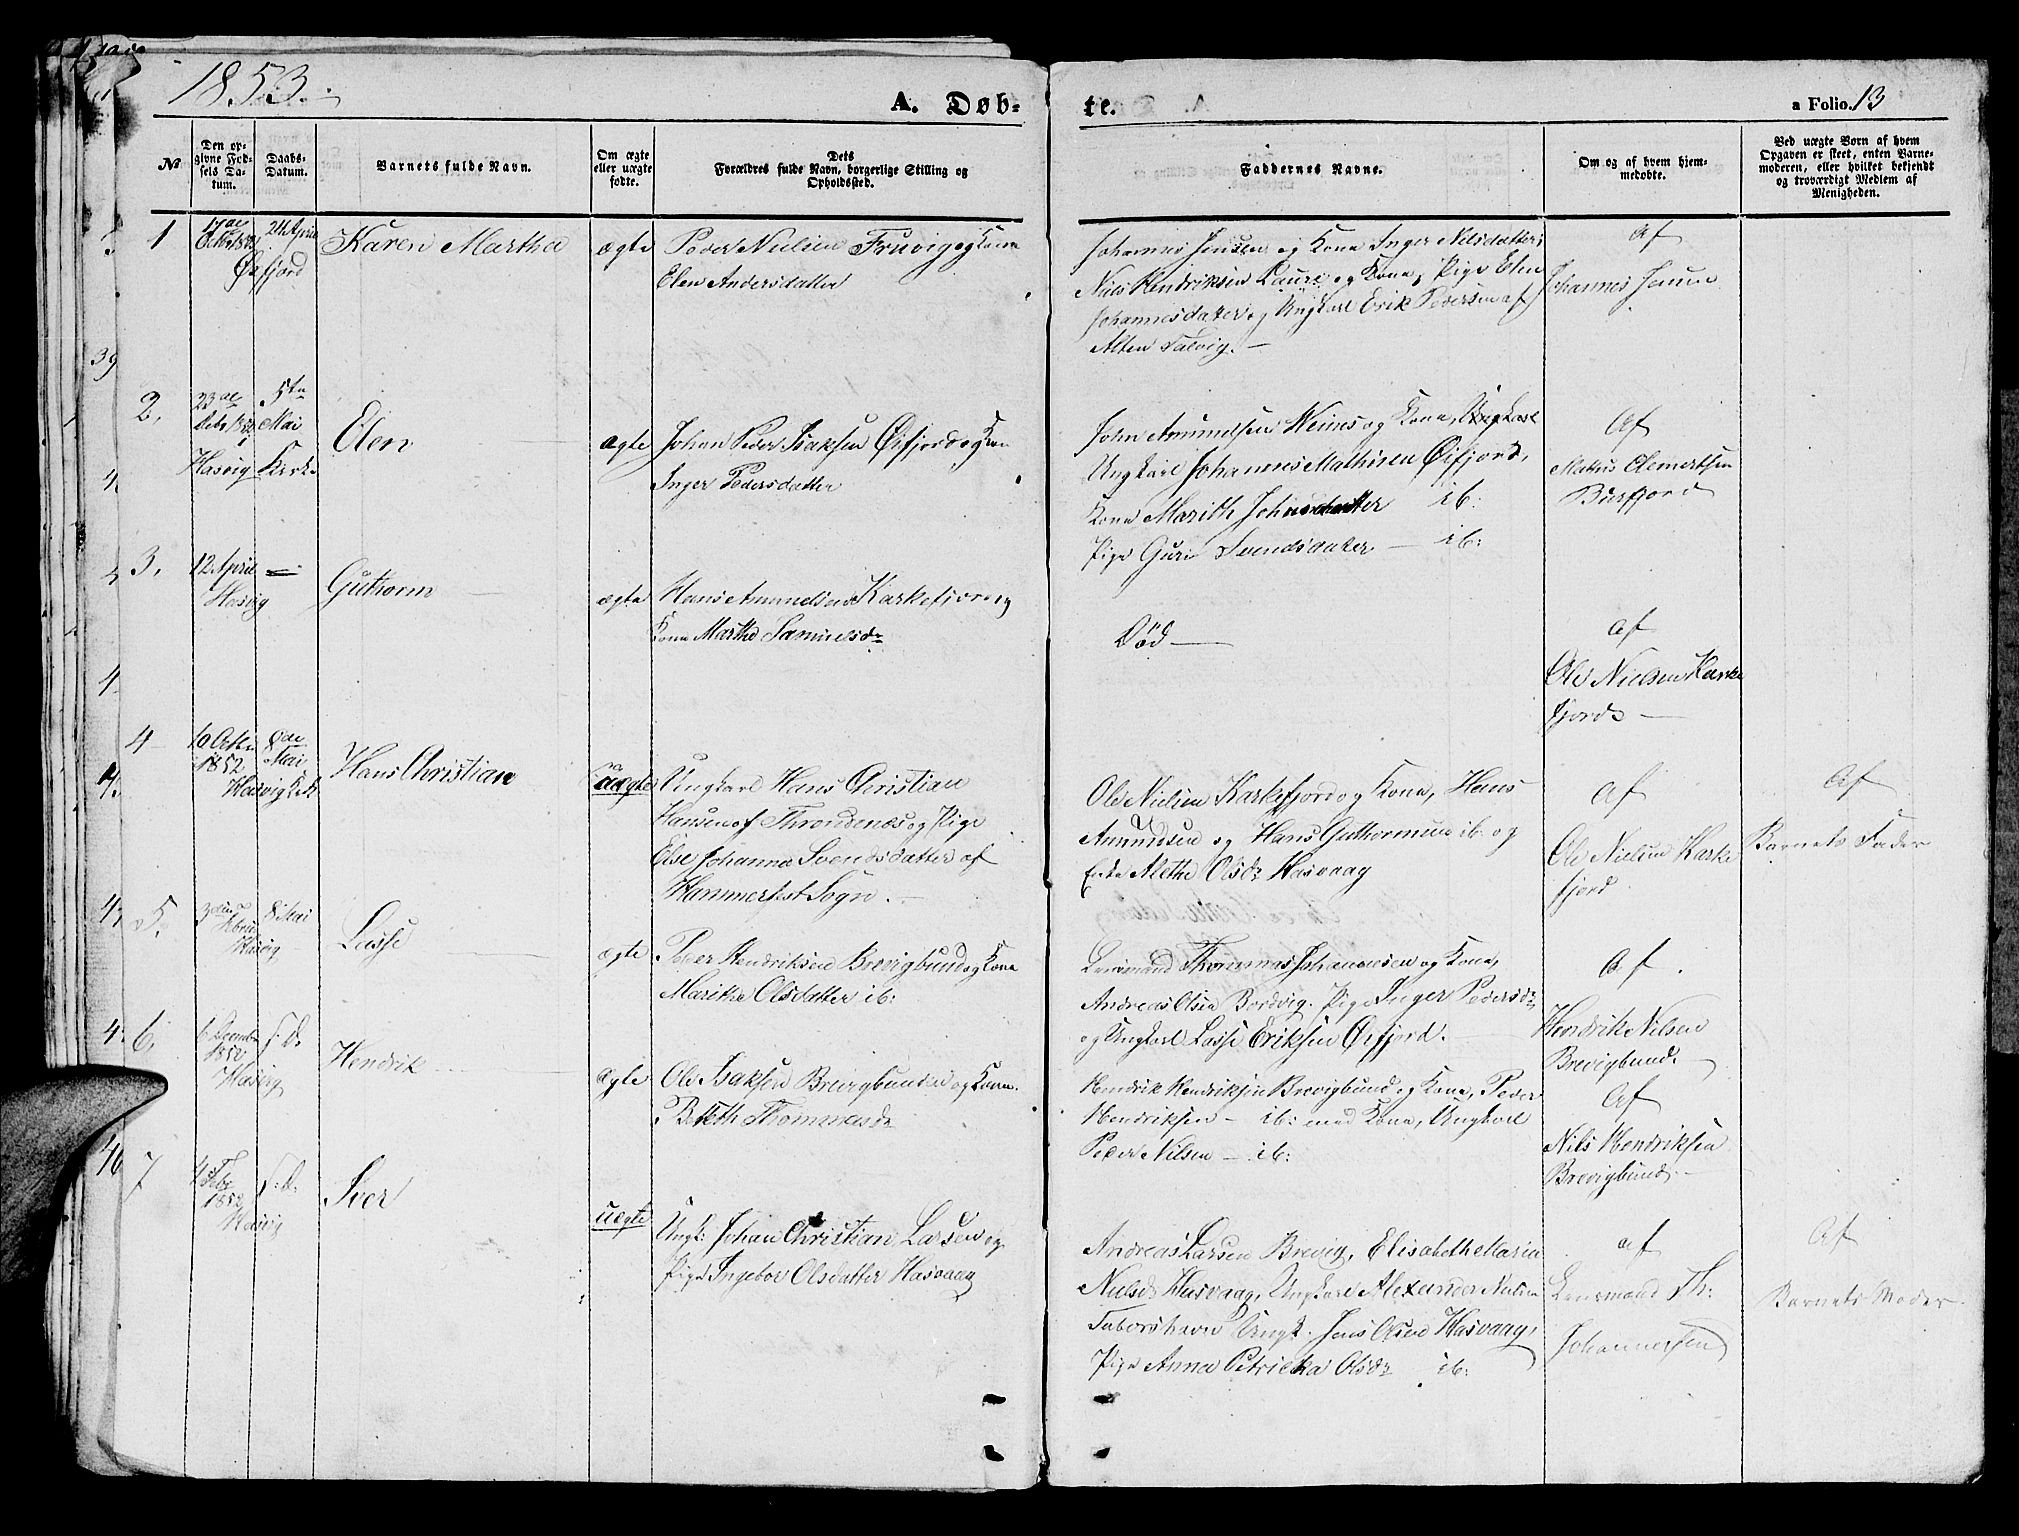 1853.
A. Døb-
te.
a Folio. 13
No
Den op-
givne Fød-
sels Da-
tum.
Daabs-
Datum.
Barnets fulde Navn.
Om ægte
eller uægte
fødte.
Dets
Forældres fulde Navn, borgerlige Stilling og
Opholdssted.
Faddernes Navne.
Om og af hvem hjem-
medøbte.
Ved uægte Børn af hvem
Opgaven er skeet, enten Barne-
moderen, eller hvilket bekjendt
og troværdigt Medlem af
Menigheden.
1
17de
24 April
Øxfjord
Karen Martha
ægte
Peder Nielsen Fruvig og Kone
Elen Andersdatter
Johannes Jensen og Kone Inger Nilsdatter,
Niels Hendriksen Lauri og Kone, Pige Elen
Johannesdater og Ungkarl Erik Pedersen af
Alten Talvig. —
Af
Johannes Jensen
2.
23de
5te
Mai
Hasvig Kirke
Elen
ægte
Johan Peder Isaksen Øxfjord og Kone
Inger Pedersdatter
John Amundsen Meines og Kone, Ungkarl
Ungkarl Johannes Mathisen Øxfjord,
Kone Marith Johnsdatter ib:
Pige Guri Svendsdater — ib:
Af
Mathis Clemertsen
Burfjord
3.
12 April
Hasvig
Guthorm
ægte
Hans Amundsen Karkefjord og
Kone Marthe Samuelsdr
Død —
Af
Ole Nielsen Karke
fjord —
4
10 Octbr
1852
8de
Mai
Hasvig Kirk
Hans Christian
uægte
Ungkarl Hans Christian
Hansen af Throndenes og Pige
Else Johanna Svendsdatter af
Hammerfest Sogn. —
Ole Nielsen Karkefjord og Kone, Hans
Amundsen og Hans Guthormsen ib: og
Enke Alethe Olsdr Hasvaag
Af
Ole Nielsen Karke
fjord.
Af
Barnets Fader
5.
8 Mai
Hasvig
Lasse
ægte
Peder Hendriksen Brevigbund og Kone
Marithe Olsdatter ib:
Lensmand Thommas Johannesen og Kone,
Andreas Olsen Bordvig. Pige Inger Pedersdr
og Ungkarl Lasse Eriksen Øxfjord.
Af
Hendrik Nilsen
Brevigbund.
6.
6 Decembr
1852
Hasvig
s. D.
Hendrik
ægte
Ole Isaksen Brevigbunden og Kone.
Bereth Thommasdr
Hendrik Hendriksen Brevigbund og Kone, Peder
Hendriksen — ib: med Kone, Ungkarl
Peder Nilsen — ib:
Af
Nils Hendriksen
Brevigbund. —
7
4 Febr
1852
Hasvig
s. D.
Iver
uægte
Ungk: Johan Christian Larsen og
Pige Ingebor Olsdatter Hasvaag
Andreas Larsen Brevig, Elisabeth Maria
Nielsdr Hasvaag, Ungkarl Alexander Nielsen
Ungk. Jens Olsen Hasvaag,
Pige Anna Petrikka Olsdr ib:
af
Lensmand Th:
Johannesen
Af
Barnets Moder.